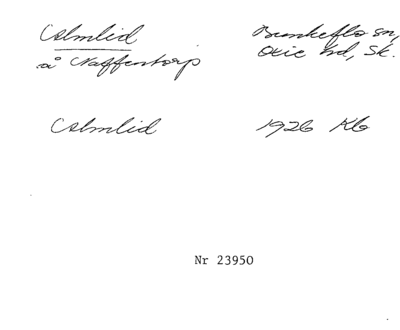 Almlid
å Naffentorp
Bunkeflo sn,
Oxie hd, Sk.
Almlid
1926 Kb
Nr 23950